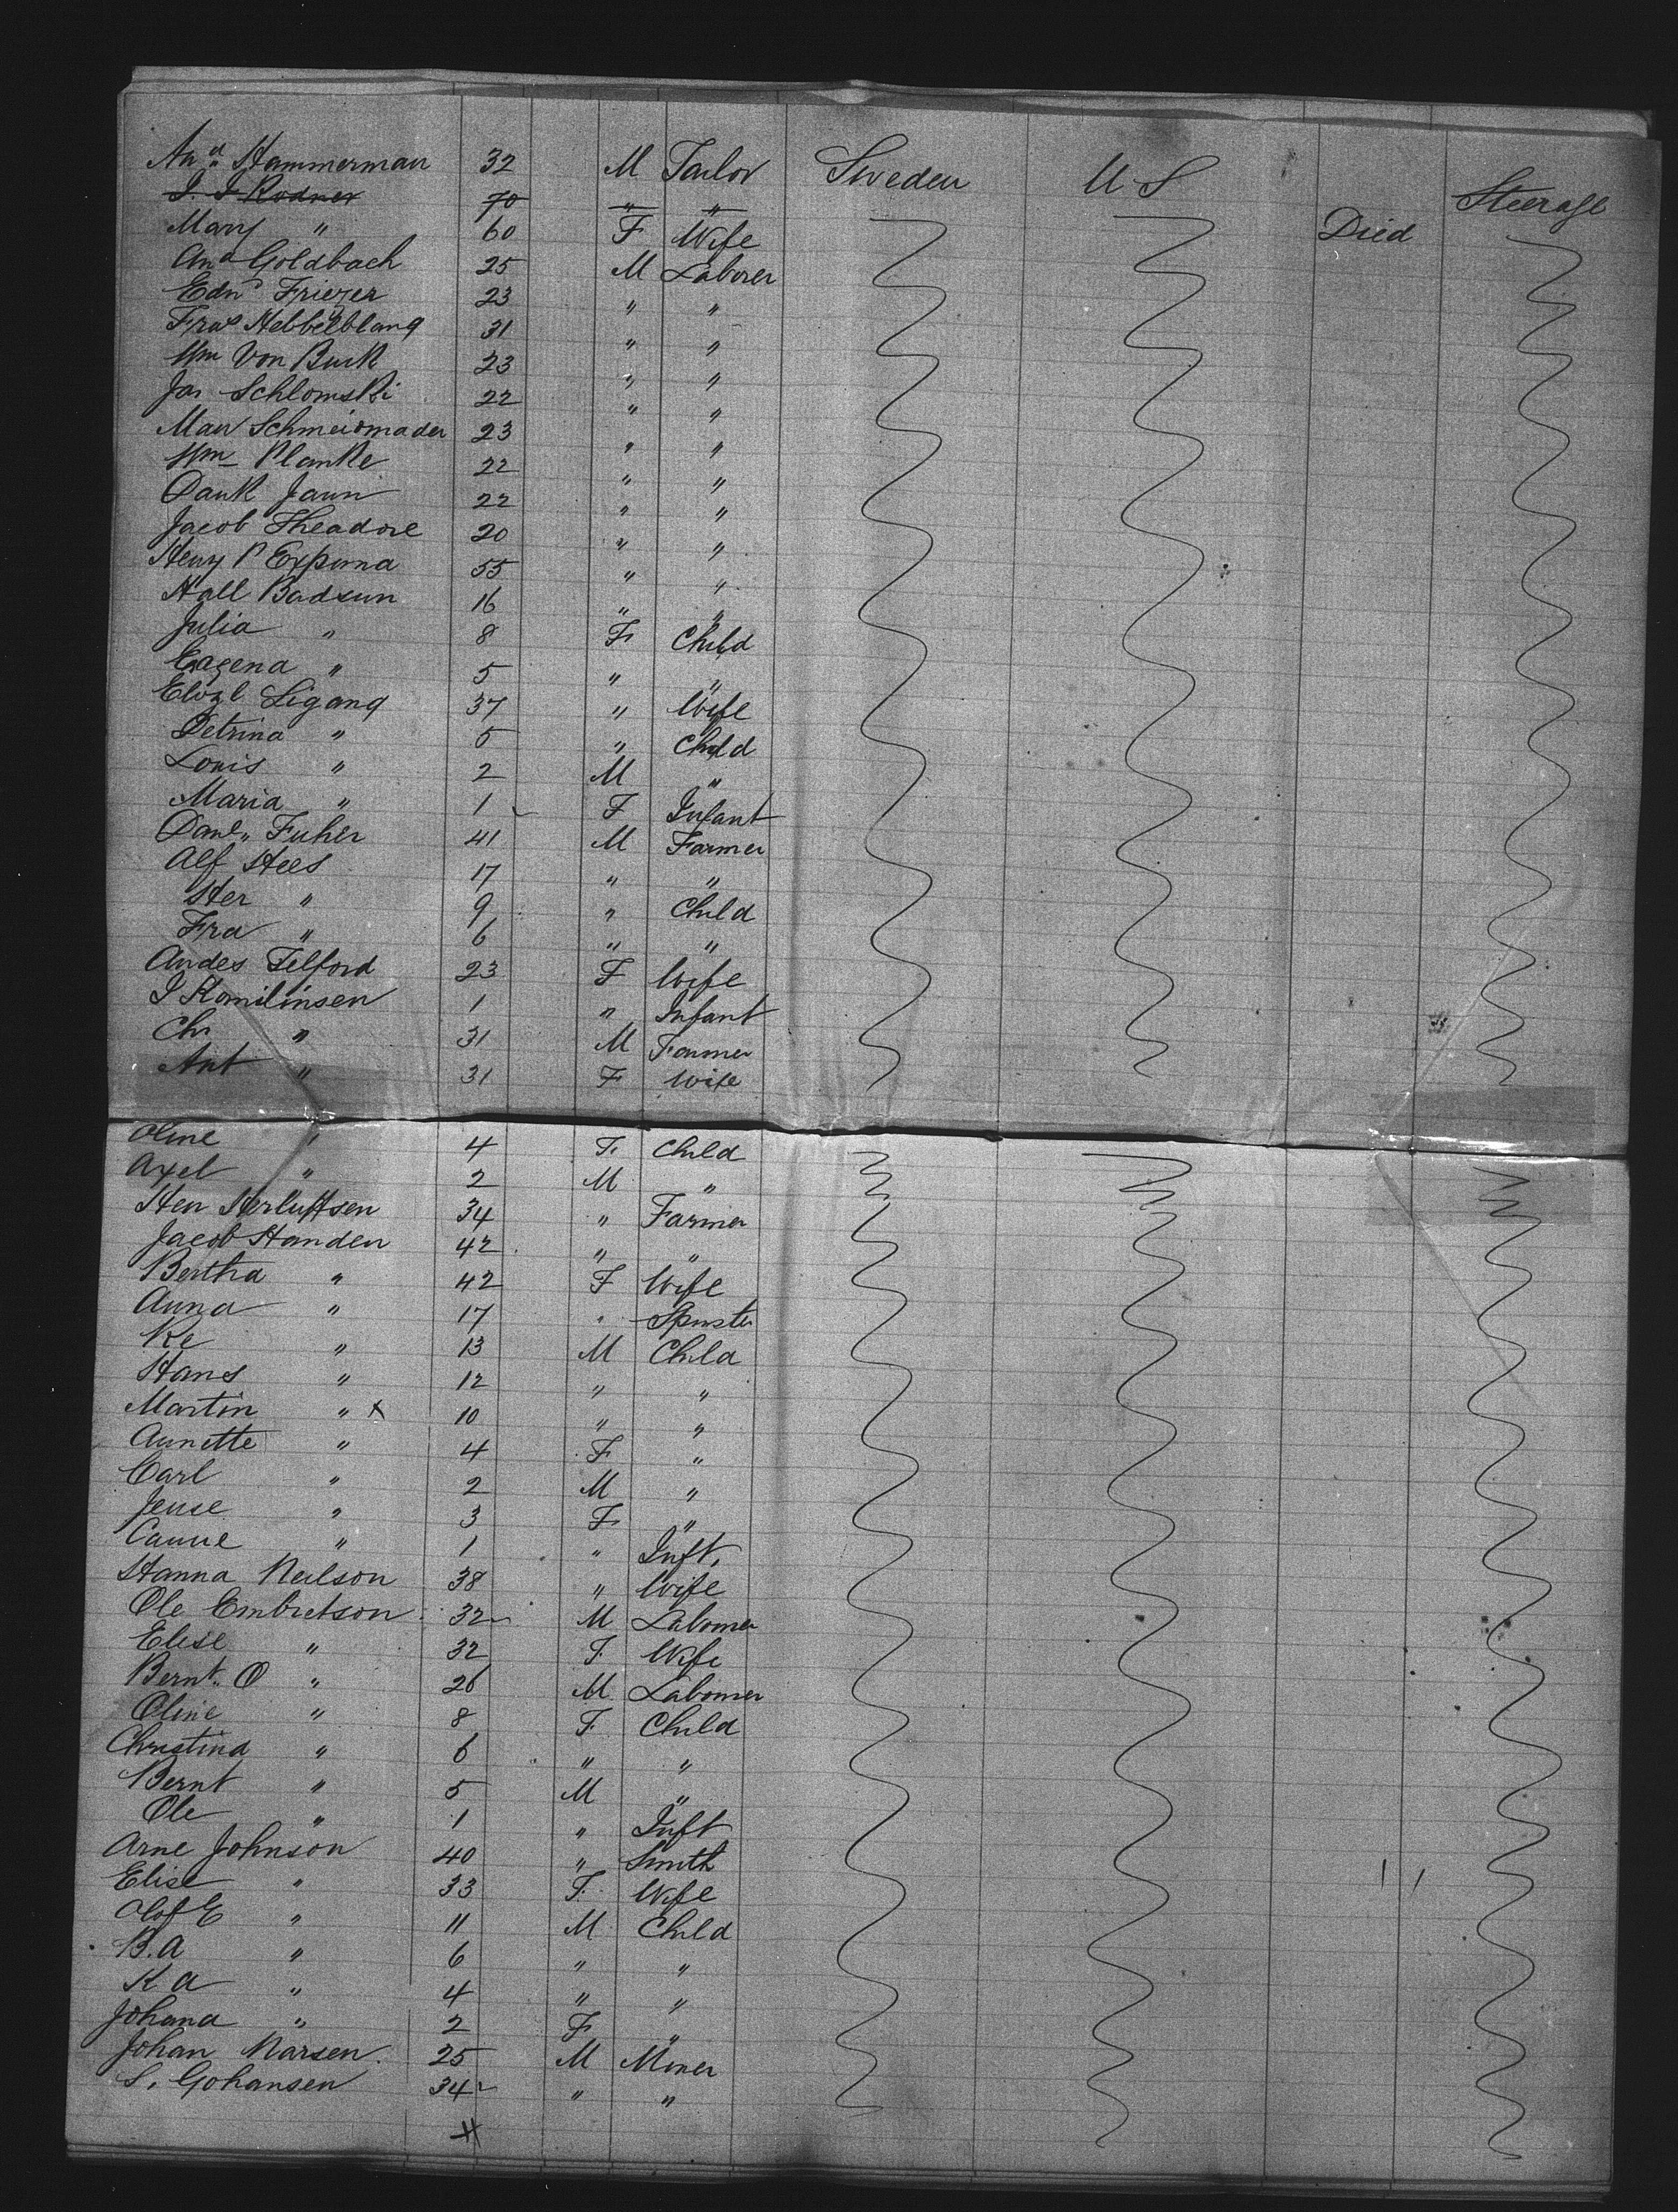 And Hammerman 32 M Tailor Sweden U S Steerage
J. J. Rodner 70 " " Died
Mary " 60 F Wife
And Goldbach 25 M Laborer
Edn Friezer 23 " "
Fras Hebbelblang 31 " "
Wm Von Burk 23 " "
Jas Schlomski 22 " "
Max Schmeismader 23 " "
Wm Planke 22 " "
Dank Jaun 22 " "
Jacob Theadore 20 " "
Heny P Expurna 55 " "
Hall Badzun 16 " "
Julia " 8 F Child
Eagena " 5 " "
Elizl Ligang 37 " Wife
Detrina " 5 " Child
Louis " 2 M "
Maria " 1 F Infant
Danl Fuher 41 M Farmer
Alf Hees 17 " "
Her " 9 " Child
Fra " 6 " "
Andes Telford 23 F Wife
I Komilinsen 1 " Infant
Chr " 31 M Farmer
Ant " 31 F Wife
Oline " 4 F. Child
Axel " 2 M "
Hen Herluftsen 34 " Farmer
Jacob Handen 42 " "
Bertha " 42 F Wife
Anna " 17 " Spinster
Ke " 13 M Child
Hans " 12 " "
Martin " x 10 " "
Annette " 4 F "
Carl " 2 M "
Jense " 3 F "
Canne " 1 " Inft.
Hanna Neilson 38 " Wife
Ole Embretson 32 M Laborer
Elise " 32 F. Wife
Bernt. O " 26 M Laborer
Oline " 8 F. Child
Christina " 6 " "
Bernt " 5 M "
Ole " 1 " Inft
Arne Johnson 40 " Smith
Elise " 33 F. Wife
Olof E " 11 M Child
B. A " 6 " "
K A " 4 " "
Johana " 2 F "
Johan Narsen. 25 M Miner
S. Gohansen 34 " "